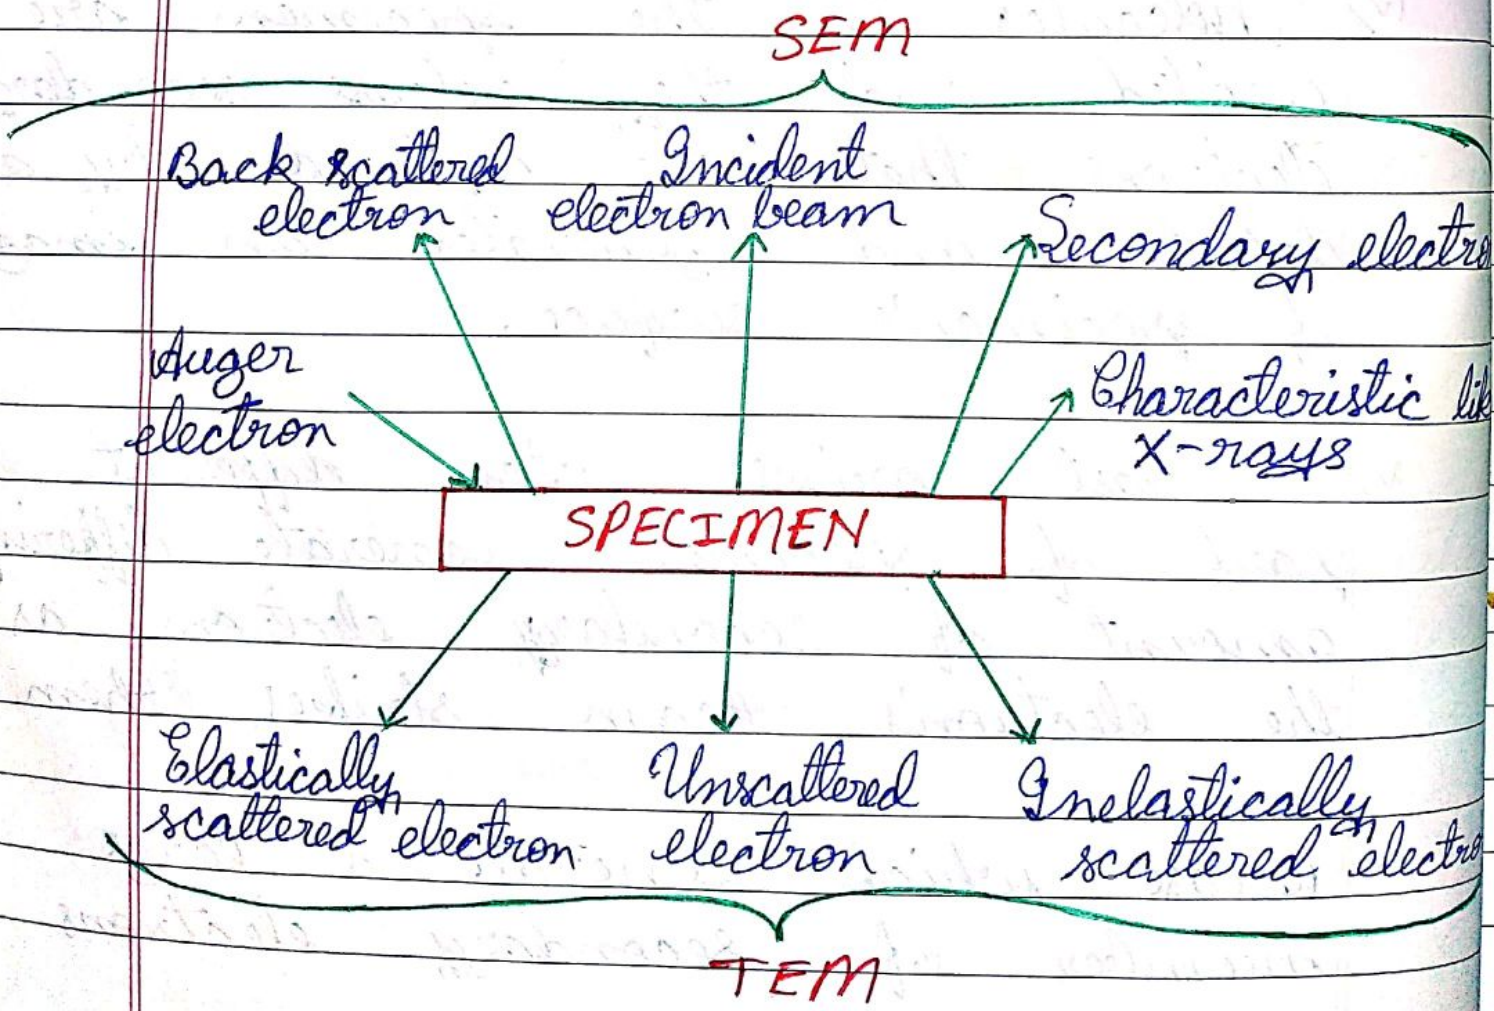 SEM
Back scattered
electron
Incident
electron beam
Secondary electro
Auger
electron
Characteristic lik
X-rays
SPECIMEN
Elastically
scattered electron
Unscattered
electron
Inelastically
scattered electro
TEM